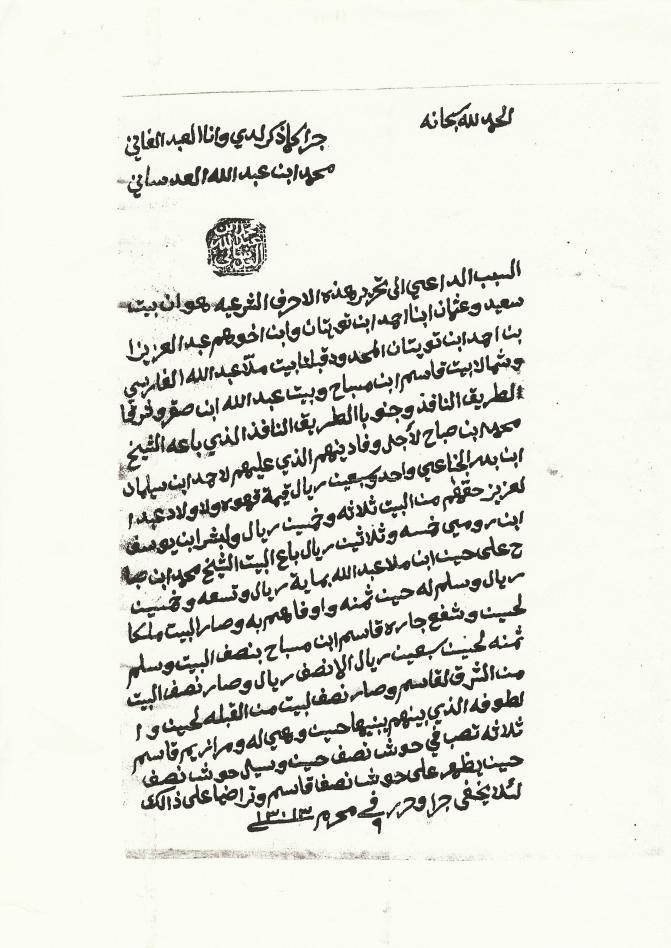 الحمد لله سبحانه
جرا كما ذكر لدي وانا العبد الفاني
محمد ابن عبد الله العدساني
السبب الداعي الى تحرير هذه الاحرف الشرعيه هو ان بيت
سعيد وعثمان ابنا احمد ابن توبتان وابن اخوهم عبد العزيز ا
بن احمد ابن توبتان المحدود قبلتا بيت ملا عبد الله الفارسي
وشمالا بيت قاسم ابن مباح وبيت عبد الله ابن صقر وشرقا
الطريق النافذ وجنوبا الطريق النافذ الذي باعه الشيخ
محمد ابن صباح لأجل وفا دينهم الذي عليهم لاحمد ابن سلمان
ابن بدر الخاعي واحد وسبعين ريال قيمة قهوه ولاولاد عبد ا
لعزيز حقهم من البيت ثلاثه وخمسين ريال ولبشر ابن يوسف
ابن رومي خمسه وثلاثين ريال باع البيت الشيخ محمد ابن صبا
ح على حسين ابن ملا عبد الله بماية ريال وتسعه وخمسين
ريال وسلم له حسين ثمنه واوفاهم به وصار البيت ملكا
لحسين وشفع جاره قاسم ابن مباح بنصف البيت وسلم
ثمنه لحسين سبعين ريال الا نصف ريال وصار نصف البيت
من الشرق لقاسم وصار نصف البيت من القبله لحسين و ا
لطوفه الذي بينهم يبنيها حسين وهي له ومرازيم قاسم
ثلاثه تصب في حوش نصف حسين وسيل حوش نصف
حسين يظهر على حوش نصف قاسم وتراضا على ذالك
لئلا يخفى جرا وحرر في ٩ محرم ١٣١٣